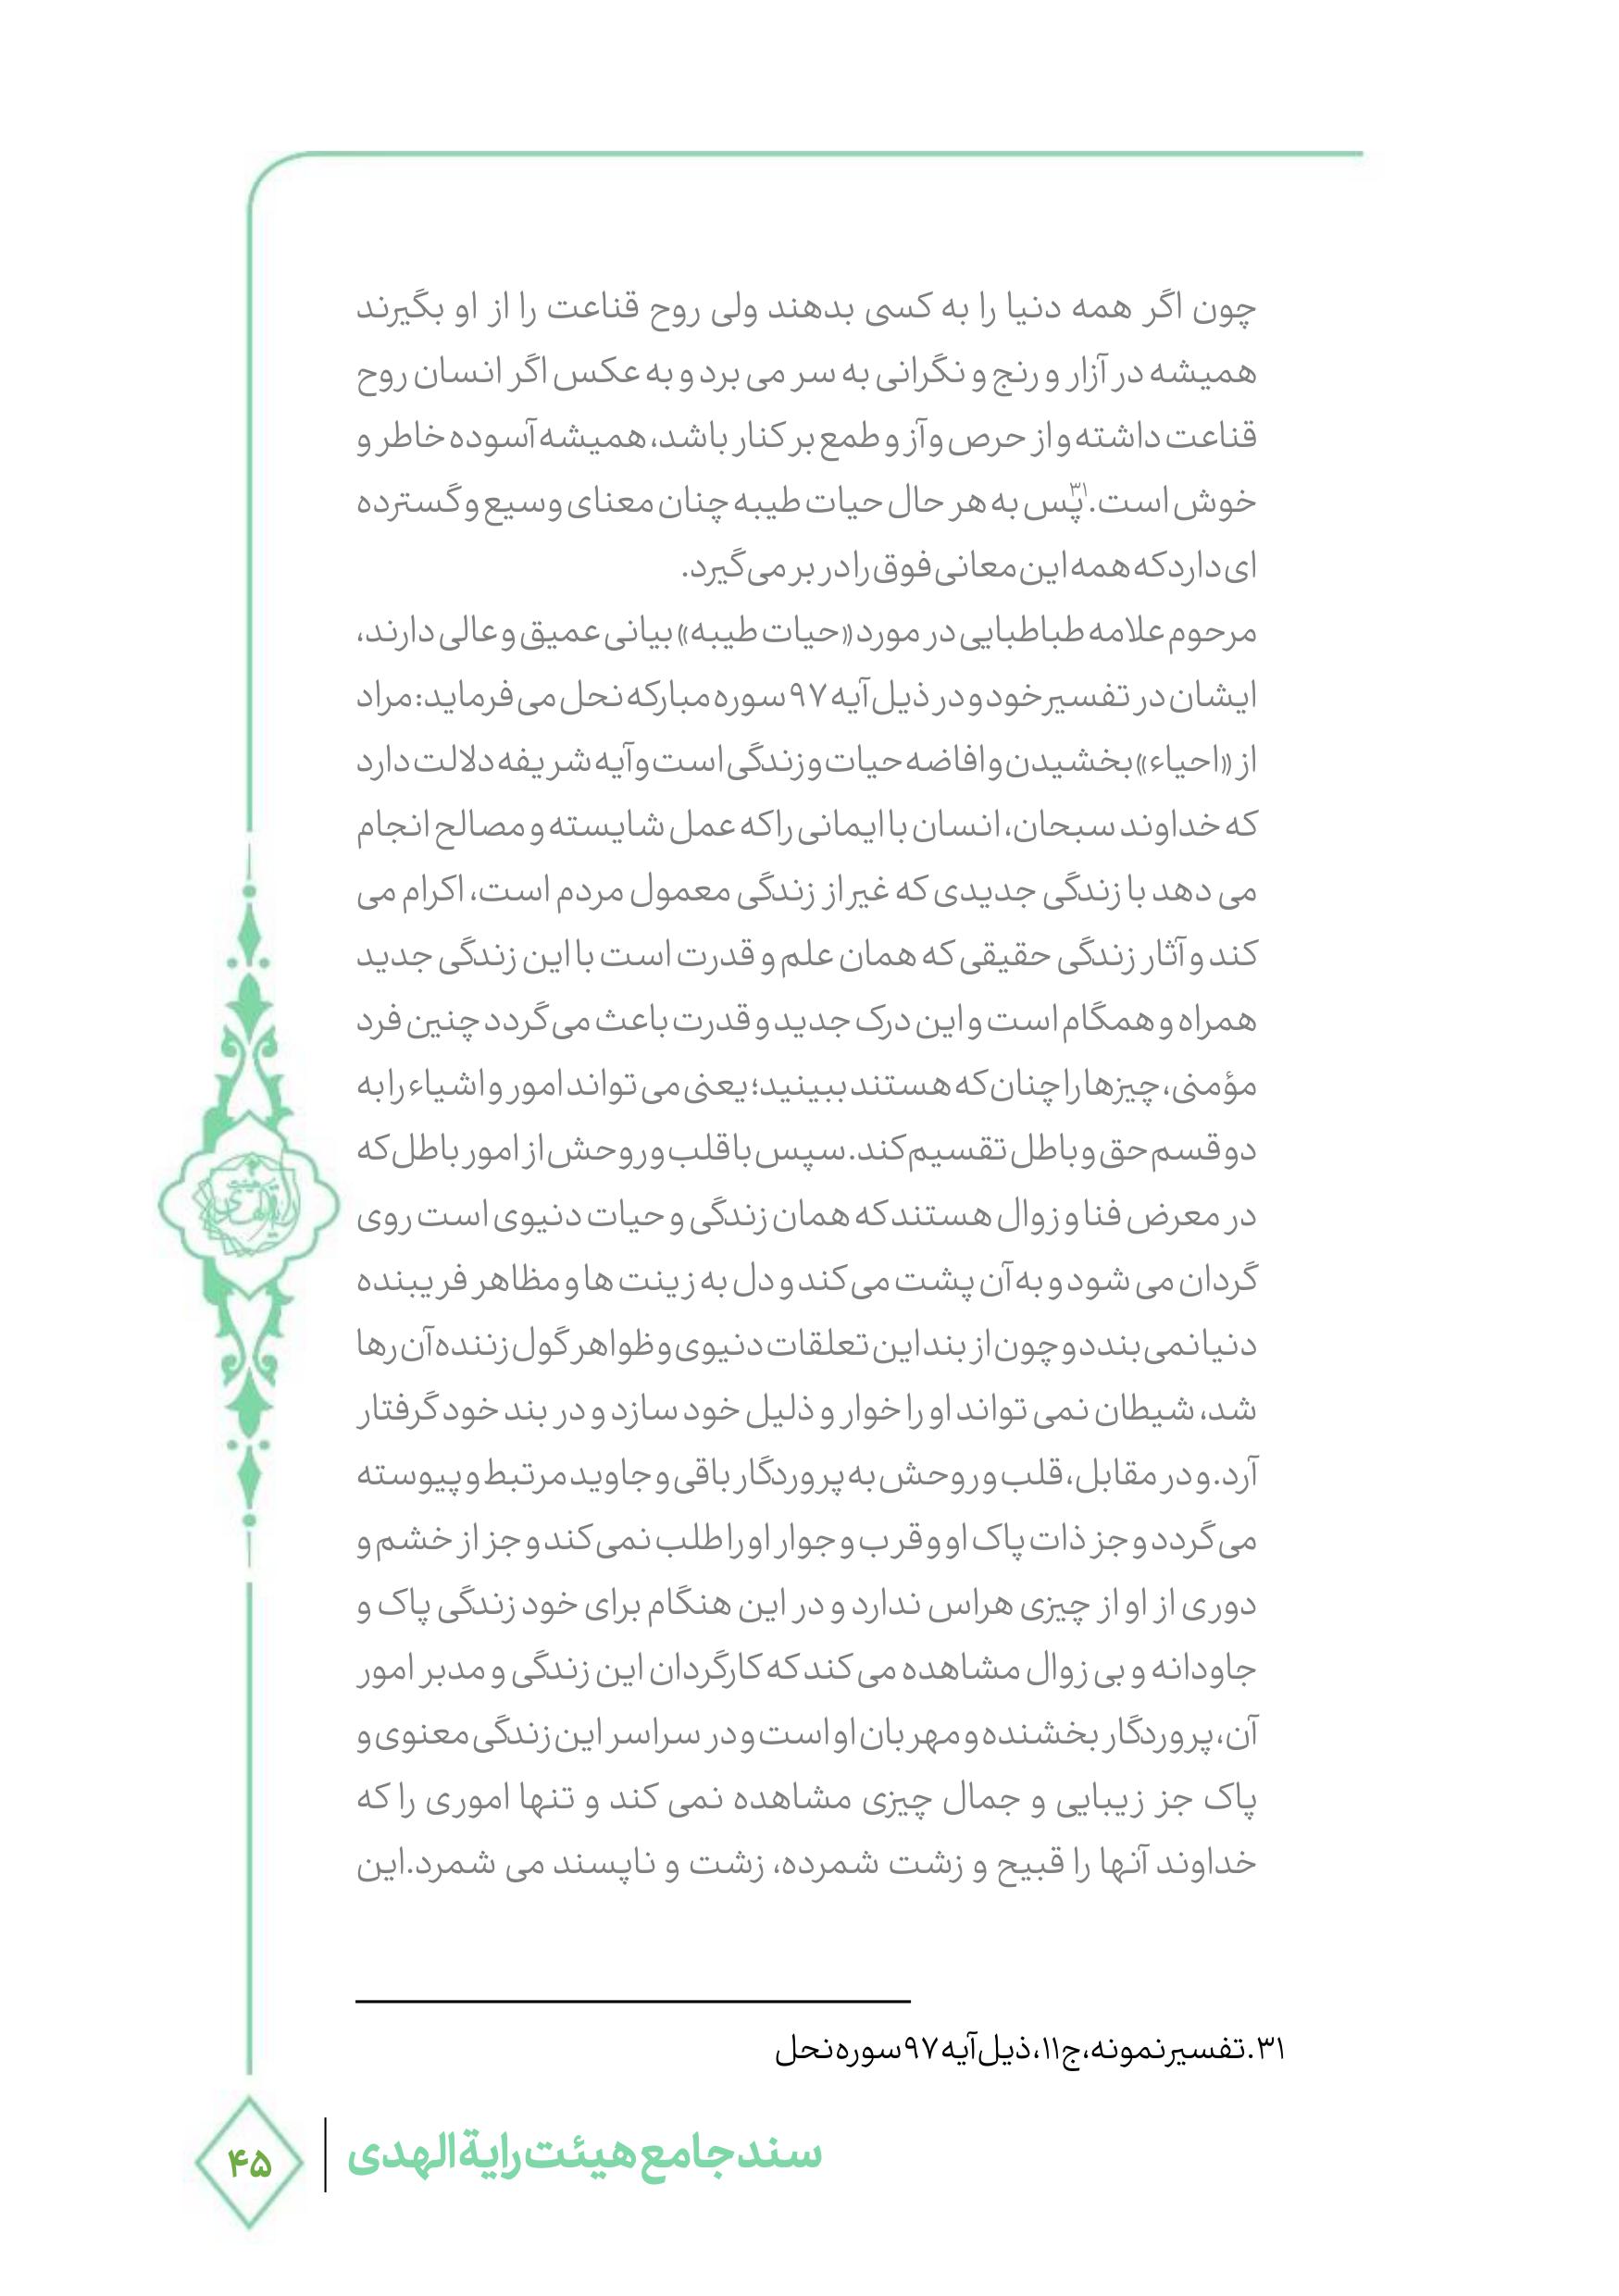 چون اگر همه دنیا را به کسی بدهند ولی روح قناعت را از او بگیرند
همیشه در آزار و رنج و نگرانی به سر می برد و به عکس اگر انسان روح
قناعت داشته و از حرص و آز و طمع بر کنار باشد، همیشه آسوده خاطر و
خوش است.۳۱ پس به هر حال حیات طیبه چنان معنای وسیع و گسترده
ای دارد که همه این معانی فوق را در بر می گیرد.
مرحوم علامه طباطبایی در مورد «حیات طیبه» بیانی عمیق و عالی دارند،
ایشان در تفسیر خود و در ذیل آیه ۹۷ سوره مبارکه نحل می فرماید: مراد
از «احیاء» بخشیدن و افاضه حیات و زندگی است و آیه شریفه دلالت دارد
که خداوند سبحان، انسان با ایمانی را که عمل شایسته و مصالح انجام
می دهد با زندگی جدیدی که غیر از زندگی معمول مردم است، اکرام می
کند و آثار زندگی حقیقی که همان علم و قدرت است با این زندگی جدید
همراه و همگام است و این درک جدید و قدرت باعث می گردد چنین فرد
مؤمنی، چیزها را چنان که هستند ببینید؛ یعنی می تواند امور و اشیاء را به
دو قسم حق و باطل تقسیم کند. سپس با قلب و روحش از امور باطل که
در معرض فنا و زوال هستند که همان زندگی و حیات دنیوی است روی
گردان می شود و به آن پشت می کند و دل به زینت ها و مظاهر فریبنده
دنیا نمی بندد و چون از بند این تعلقات دنیوی و ظواهر گول زننده آن رها
شد، شیطان نمی تواند او را خوار و ذلیل خود سازد و در بند خود گرفتار
آرد. و در مقابل، قلب و روحش به پروردگار باقی و جاوید مرتبط و پیوسته
می گردد و جز ذات پاک او و قرب و جوار او را طلب نمی کند و جز از خشم و
دوری از او از چیزی هراس ندارد و در این هنگام برای خود زندگی پاک و
جاودانه و بی زوال مشاهده می کند که کارگردان این زندگی و مدبر امور
آن، پروردگار بخشنده و مهربان او است و در سراسر این زندگی معنوی و
پاک جز زیبایی و جمال چیزی مشاهده نمی کند و تنها اموری را که
خداوند آنها را قبیح و زشت شمرده، زشت و ناپسند می شمرد.این
۳۱. تفسیر نمونه، ج۱۱، ذیل آیه ۹۷ سوره نحل
سند جامع هیئت رایة الهدی
۴۵